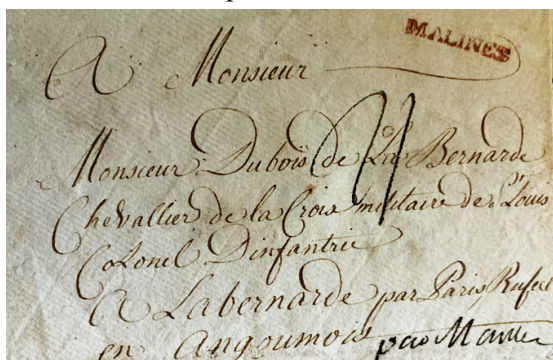 MALINES
A Monsieur
Monsieur Dubois de La Bernarde
Chevallier de la Croix militaire de St Louis
Colonel Dinfantrie
A Labernarde par Paris Rufec
en Angoumois par Mansle